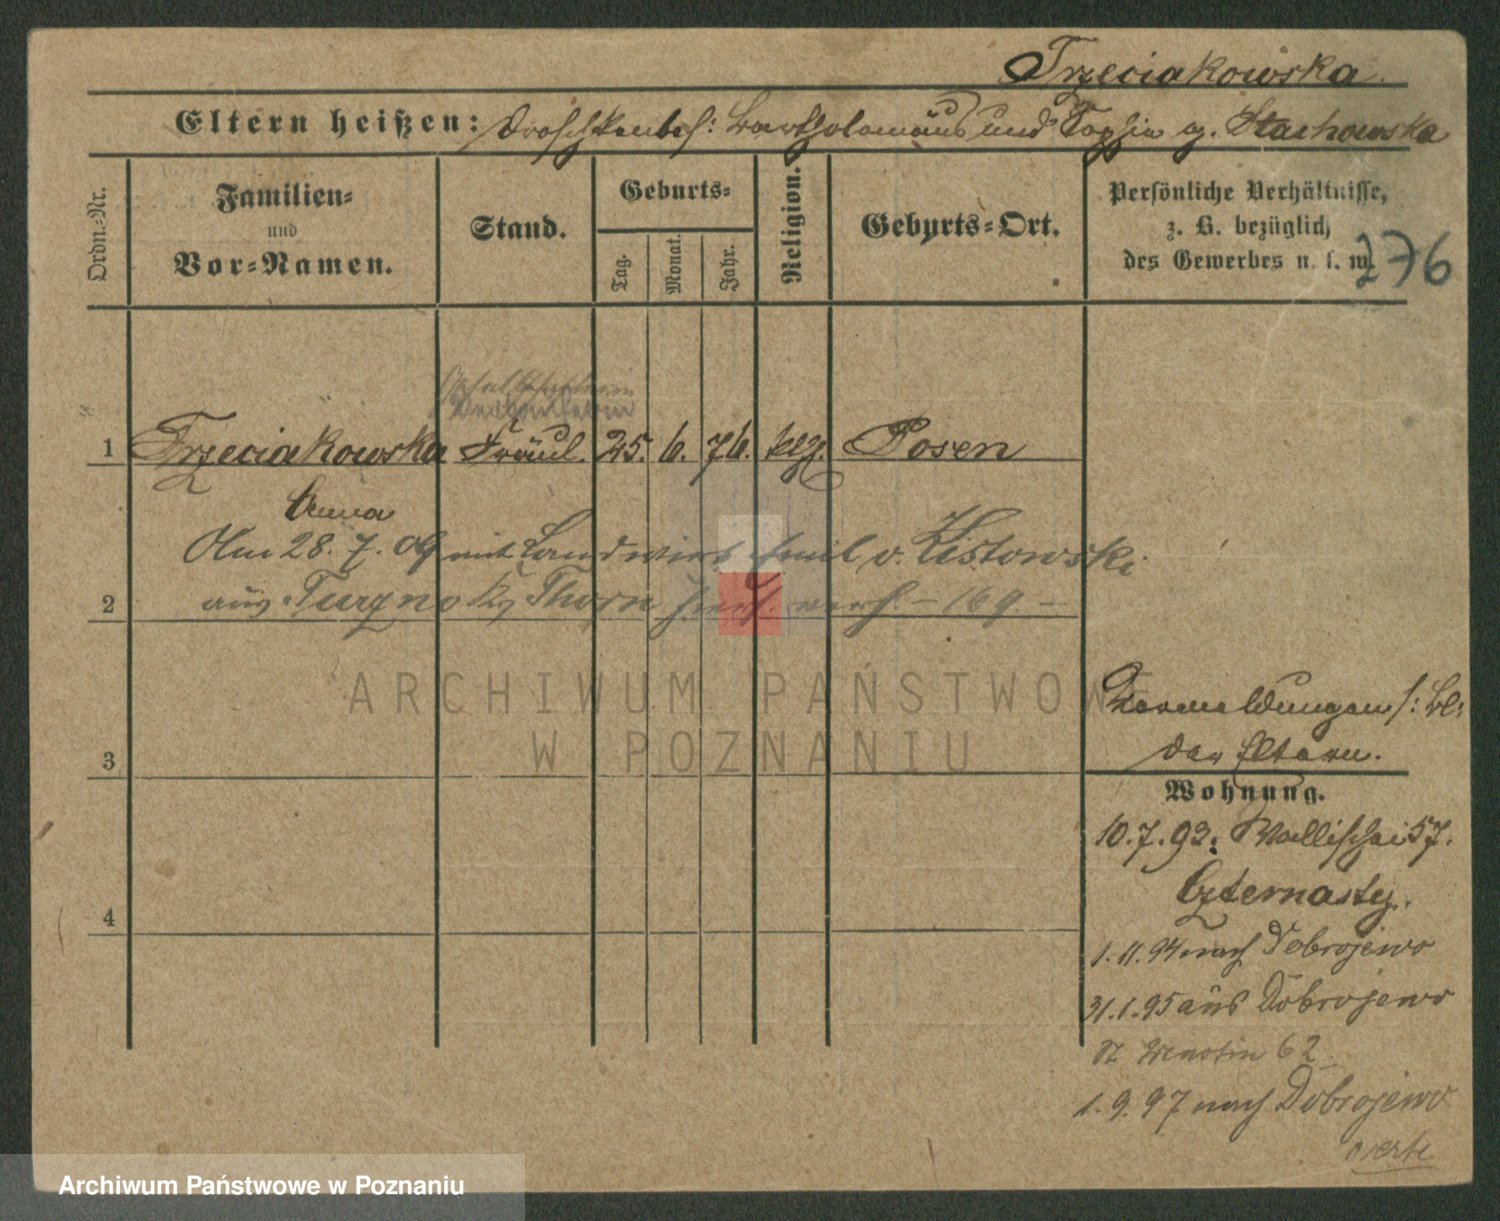 Trzeciakowska.
Eltern heißen: Droschkenbes: Bartholomäus und Sophia g. Stachowska
Ordn.-Nr.
Familien-
und
Vor-Namen.
Stand.
Geburts-
Tag.
Monat.
Jahr.
Religion.
Geburts-Ort.
Persönliche Verhältnisse,
z. B. bezüglich
des Gewerbes u. s. w.
276
1 Trzeciakowska Fräul. 25. 6. 76. Posen
Anna
Am 28. 7. 09 mit Landwirt Emil v. Kistowski
2 aus Turzno Thorn verh. – 169 –
ARCHIWUM PAŃSTWOWE
W POZNANIU
Vermeldungen s: Bl:
3 der Eltern.
Wohnung.
10. 7. 93: Wallischei 57.
Czternasty.
4
1. 11. 94 nach Dobrojewo
31. 1. 95 aus Dobrojewo
62
1. 9. 97 nach Dobrojewo
verte
Archiwum Państwowe w Poznaniu